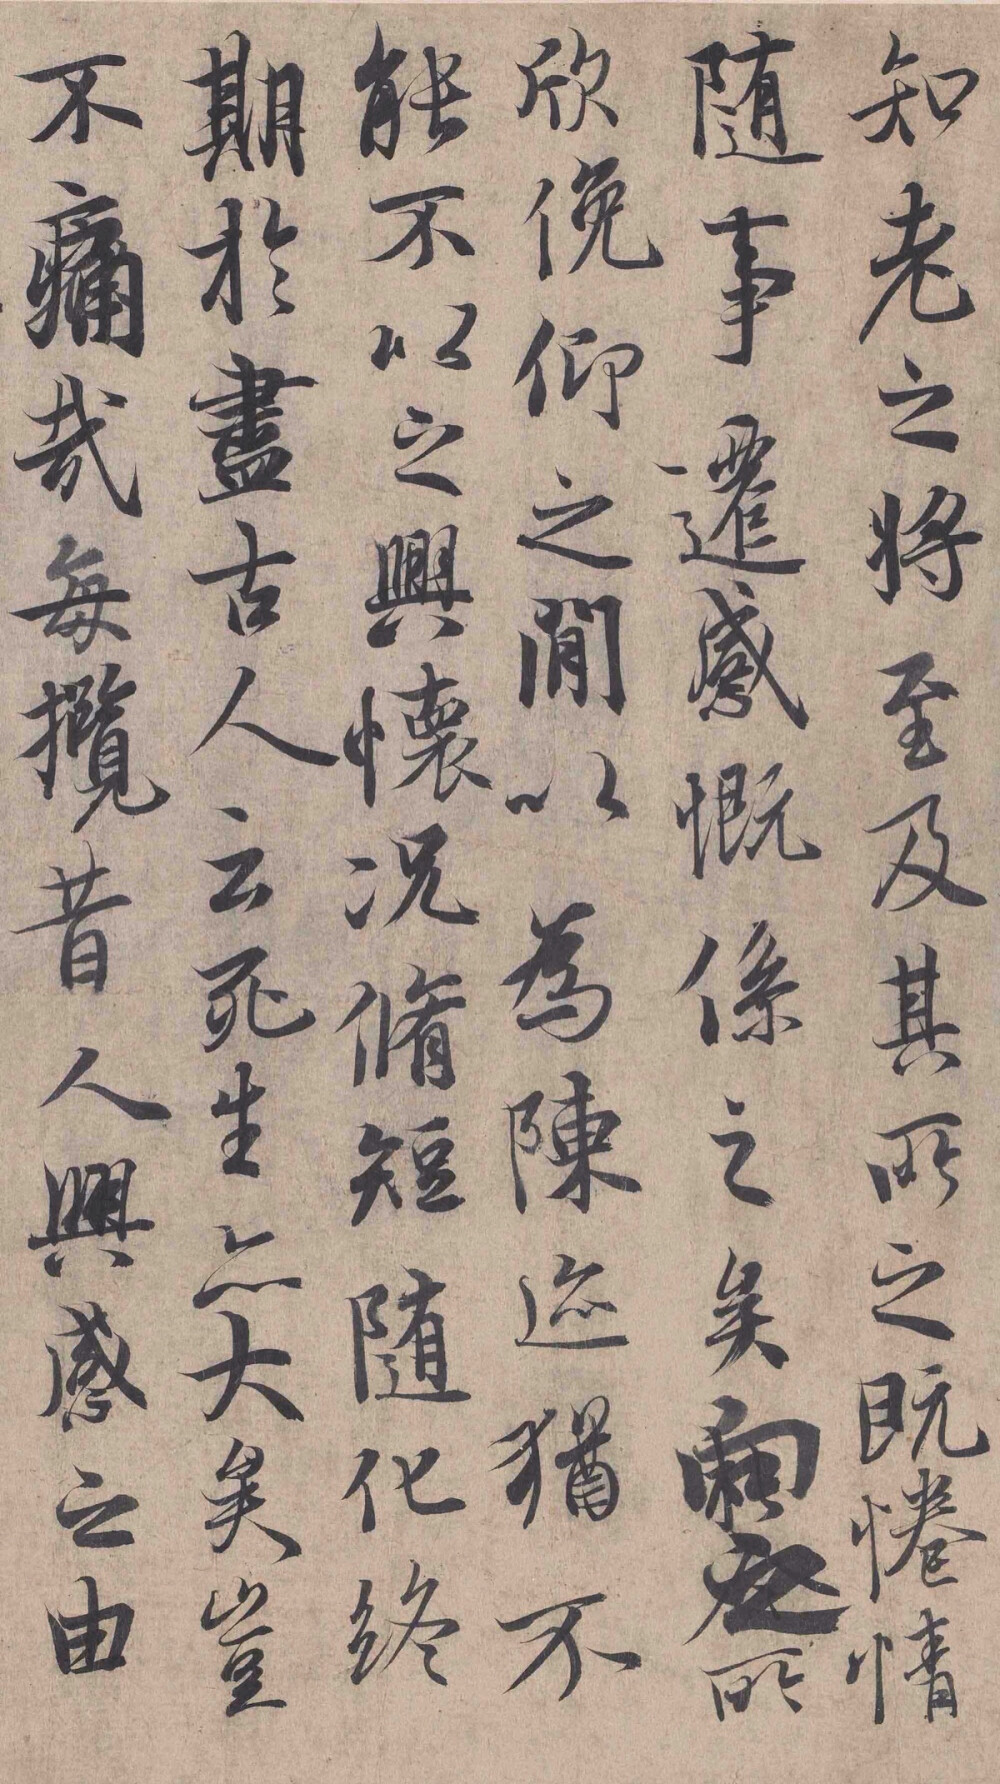 知老之將至及其所之既惓情
随事遷感慨係之矣向之所
欣俛仰之間以為陳迹猶不
能不以之興懷況脩短随化終
期於盡古人云死生亦大矣豈
不痛哉每攬昔人興感之由